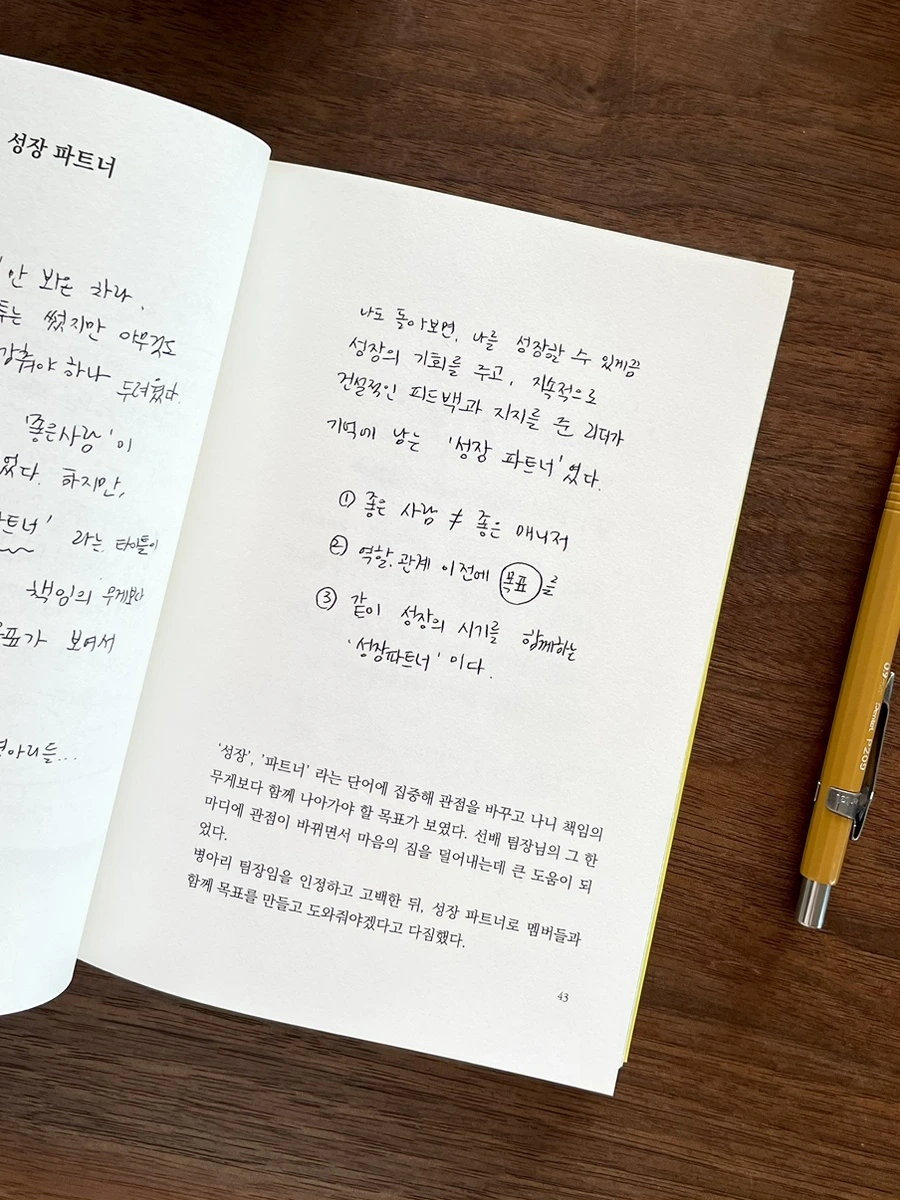 성장 파트너
안 봐온 하라.
썼지만 아무것도
갖춰야 하나 두려웠다.
'좋은사람'이
었다. 하지만,
트너' 라는 타이틀이
책임의 무게보다
표가 보여서
병아리들...
나도 돌아보면, 나를 성장할 수 있게끔
성장의 기회를 주고, 지속적으로
건설적인 피드백과 지지를 준 리더가
기억에 남는 '성장 파트너'였다.
① 좋은 사람 ≠ 좋은 매니저
② 역할.관계 이전에 목표를
③ 같이 성장의 시기를 함께하는
'성장파트너' 이다.
'성장', '파트너' 라는 단어에 집중해 관점을 바꾸고 나니 책임의
무게보다 함께 나아가야 할 목표가 보였다. 선배 팀장님의 그 한
마디에 관점이 바뀌면서 마음의 짐을 덜어내는데 큰 도움이 되
었다.
병아리 팀장임을 인정하고 고백한 뒤, 성장 파트너로 멤버들과
함께 목표를 만들고 도와줘야겠다고 다짐했다.
43
0.9 Pentel P209